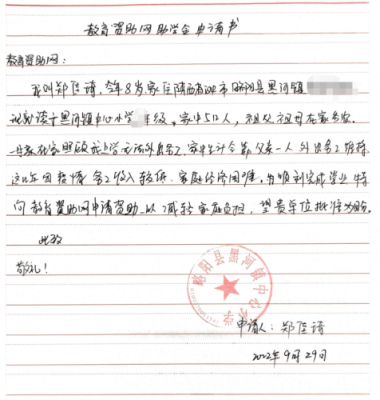 教育资助网助学金申请书
教育资助网：
我叫郑佳琦，今年8岁家住陕西省汉中市略阳县黑河镇
现就读于黑河镇中心小学 年级，家中5口人，祖父、祖母在家务农
在家照顾我上学无法外出务工，家中生计全靠父亲一人外出务工维持
这几年因疫情务工收入较低、家庭经济困难，为顺利完成学业特
向教育资助网申请资助以减轻家庭负担，望贵单位批准为盼。
此致
敬礼！
略阳县黑河镇中心小学
申请人：郑佳琦
2022年9月29日